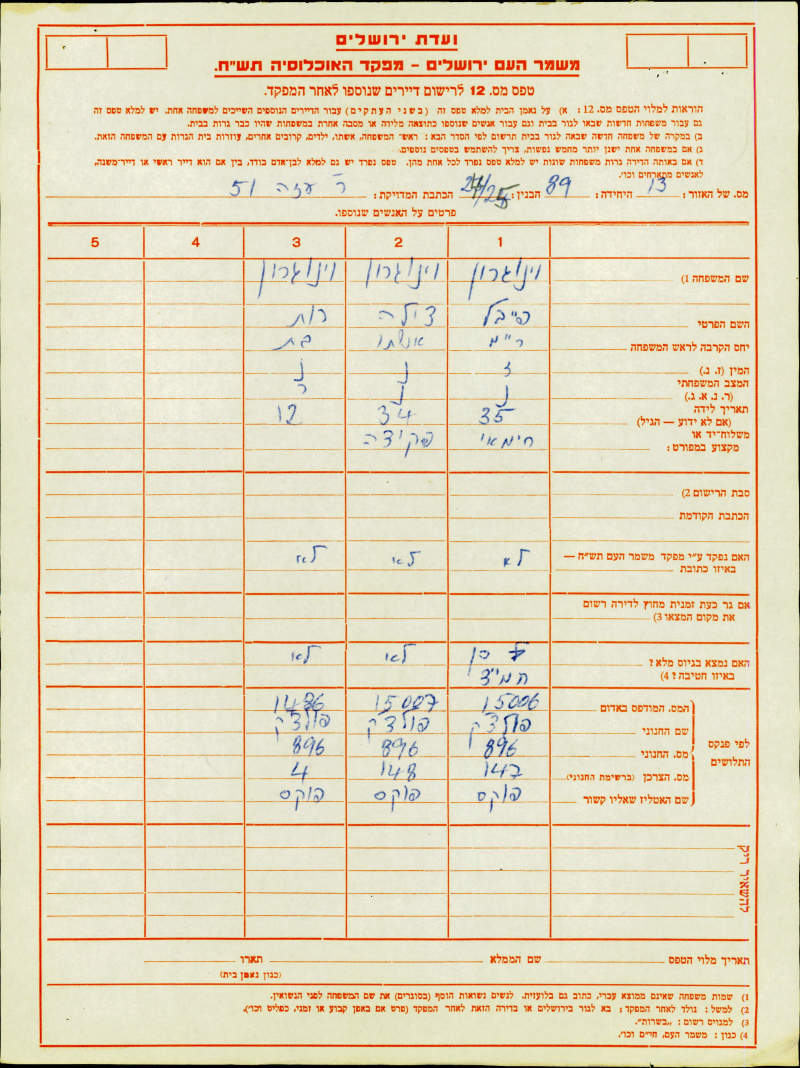 ועדת ירושלים
משמר העם ירושלים – מפקד האוכלוסיה תש"ח.
טפס מס. 12 לרישום דיירים שנוספו לאחר המפקד.
הוראות למלוי הטפס מס. 12: א) על נאמן הבית למלא טפס זה (בשני העתקים) עבור הדיירים הנוספים השייכים למשפחה אחת. יש למלא טפס זה
גם עבור משפחות חדשות שבאו לגור בבית וגם עבור אנשים שנוספו כתוצאה מלידה או מסבה אחרת במשפחות שהיו כבר גרות בבית.
ב) במקרה של משפחה חדשה שבאה לגור בבית תרשום לפי הסדר הבא: ראש המשפחה, אשתו, ילדים, קרובים אחרים, עוזרות בית הגרות עם המשפחה הזאת.
ג) אם במשפחה אחת ישנן יותר מחמש נפשות, צריך להשתמש בטפסים נוספים.
ד) אם באותה הדירה גרות משפחות שונות יש למלא טפס נפרד לכל אחת מהן. טפס נפרד יש גם למלא לבן־אדם בודד, בין אם הוא דייר ראשי או דייר־משנה,
לאנשים מתארחים וכו'.
מס. של האזור: 13 היחידה: 89 הבנין: הכתבת המדויקת: ר' עזה 51
פרטים על האנשים שנוספו.
1 2 3 4 5
שם המשפחה (1 וינוגרון וינוגרון וינוגרון
השם הפרטי פייבל צילה רות
יחס הקרבה לראש המשפחה ר"מ אשתו בת
המין (ז. נ.) ז נ נ
המצב המשפחתי
(ר. נ. א. ג.) נ נ ר
תאריך לידה
(אם לא ידוע — הגיל) 35 34 12
משלוח־יד או
מקצוע במפורט: חימאי פקידה
סבת הרישום (2
הכתבת הקודמת
האם נפקד ע"י מפקד משמר העם תש"ח — לא לא לא
באיזו כתובת
אם גר כעת זמנית מחוץ לדירה רשום
את מקום המצאו (3
האם נמצא בגיוס מלא? כן לא לא
באיזו חטיבה? (4 חמי"ד
לפי פנקס התלושים
המס. המודפס באדום 15006 15007 1486
שם החנוני פולצ'ק פולצ'ק פולצ'ק
מס. החנוני 896 896 896
מס. הצרכן (ברשימת החנוני) 147 148 4
שם האטליז שאליו קשור פוקס פוקס פוקס
להשאיר ריק
תאריך מלוי הטפס שם הממלא תארו
(כגון נאמן בית)
1) שמות משפחה שאינם ממוצא עברי, כתוב גם בלועזית. לנשים נשואות הוסף (בסוגרים) את שם המשפחה לפני הנשואין.
2) למשל: נולד לאחר המפקד; בא לגור בירושלים או בדירה הזאת לאחר המפקד (פרט אם באפן קבוע או זמני, כפליט וכו').
3) למגויס רשום: „בשרות".
4) כגון: משמר העם, חי"ם וכו'.